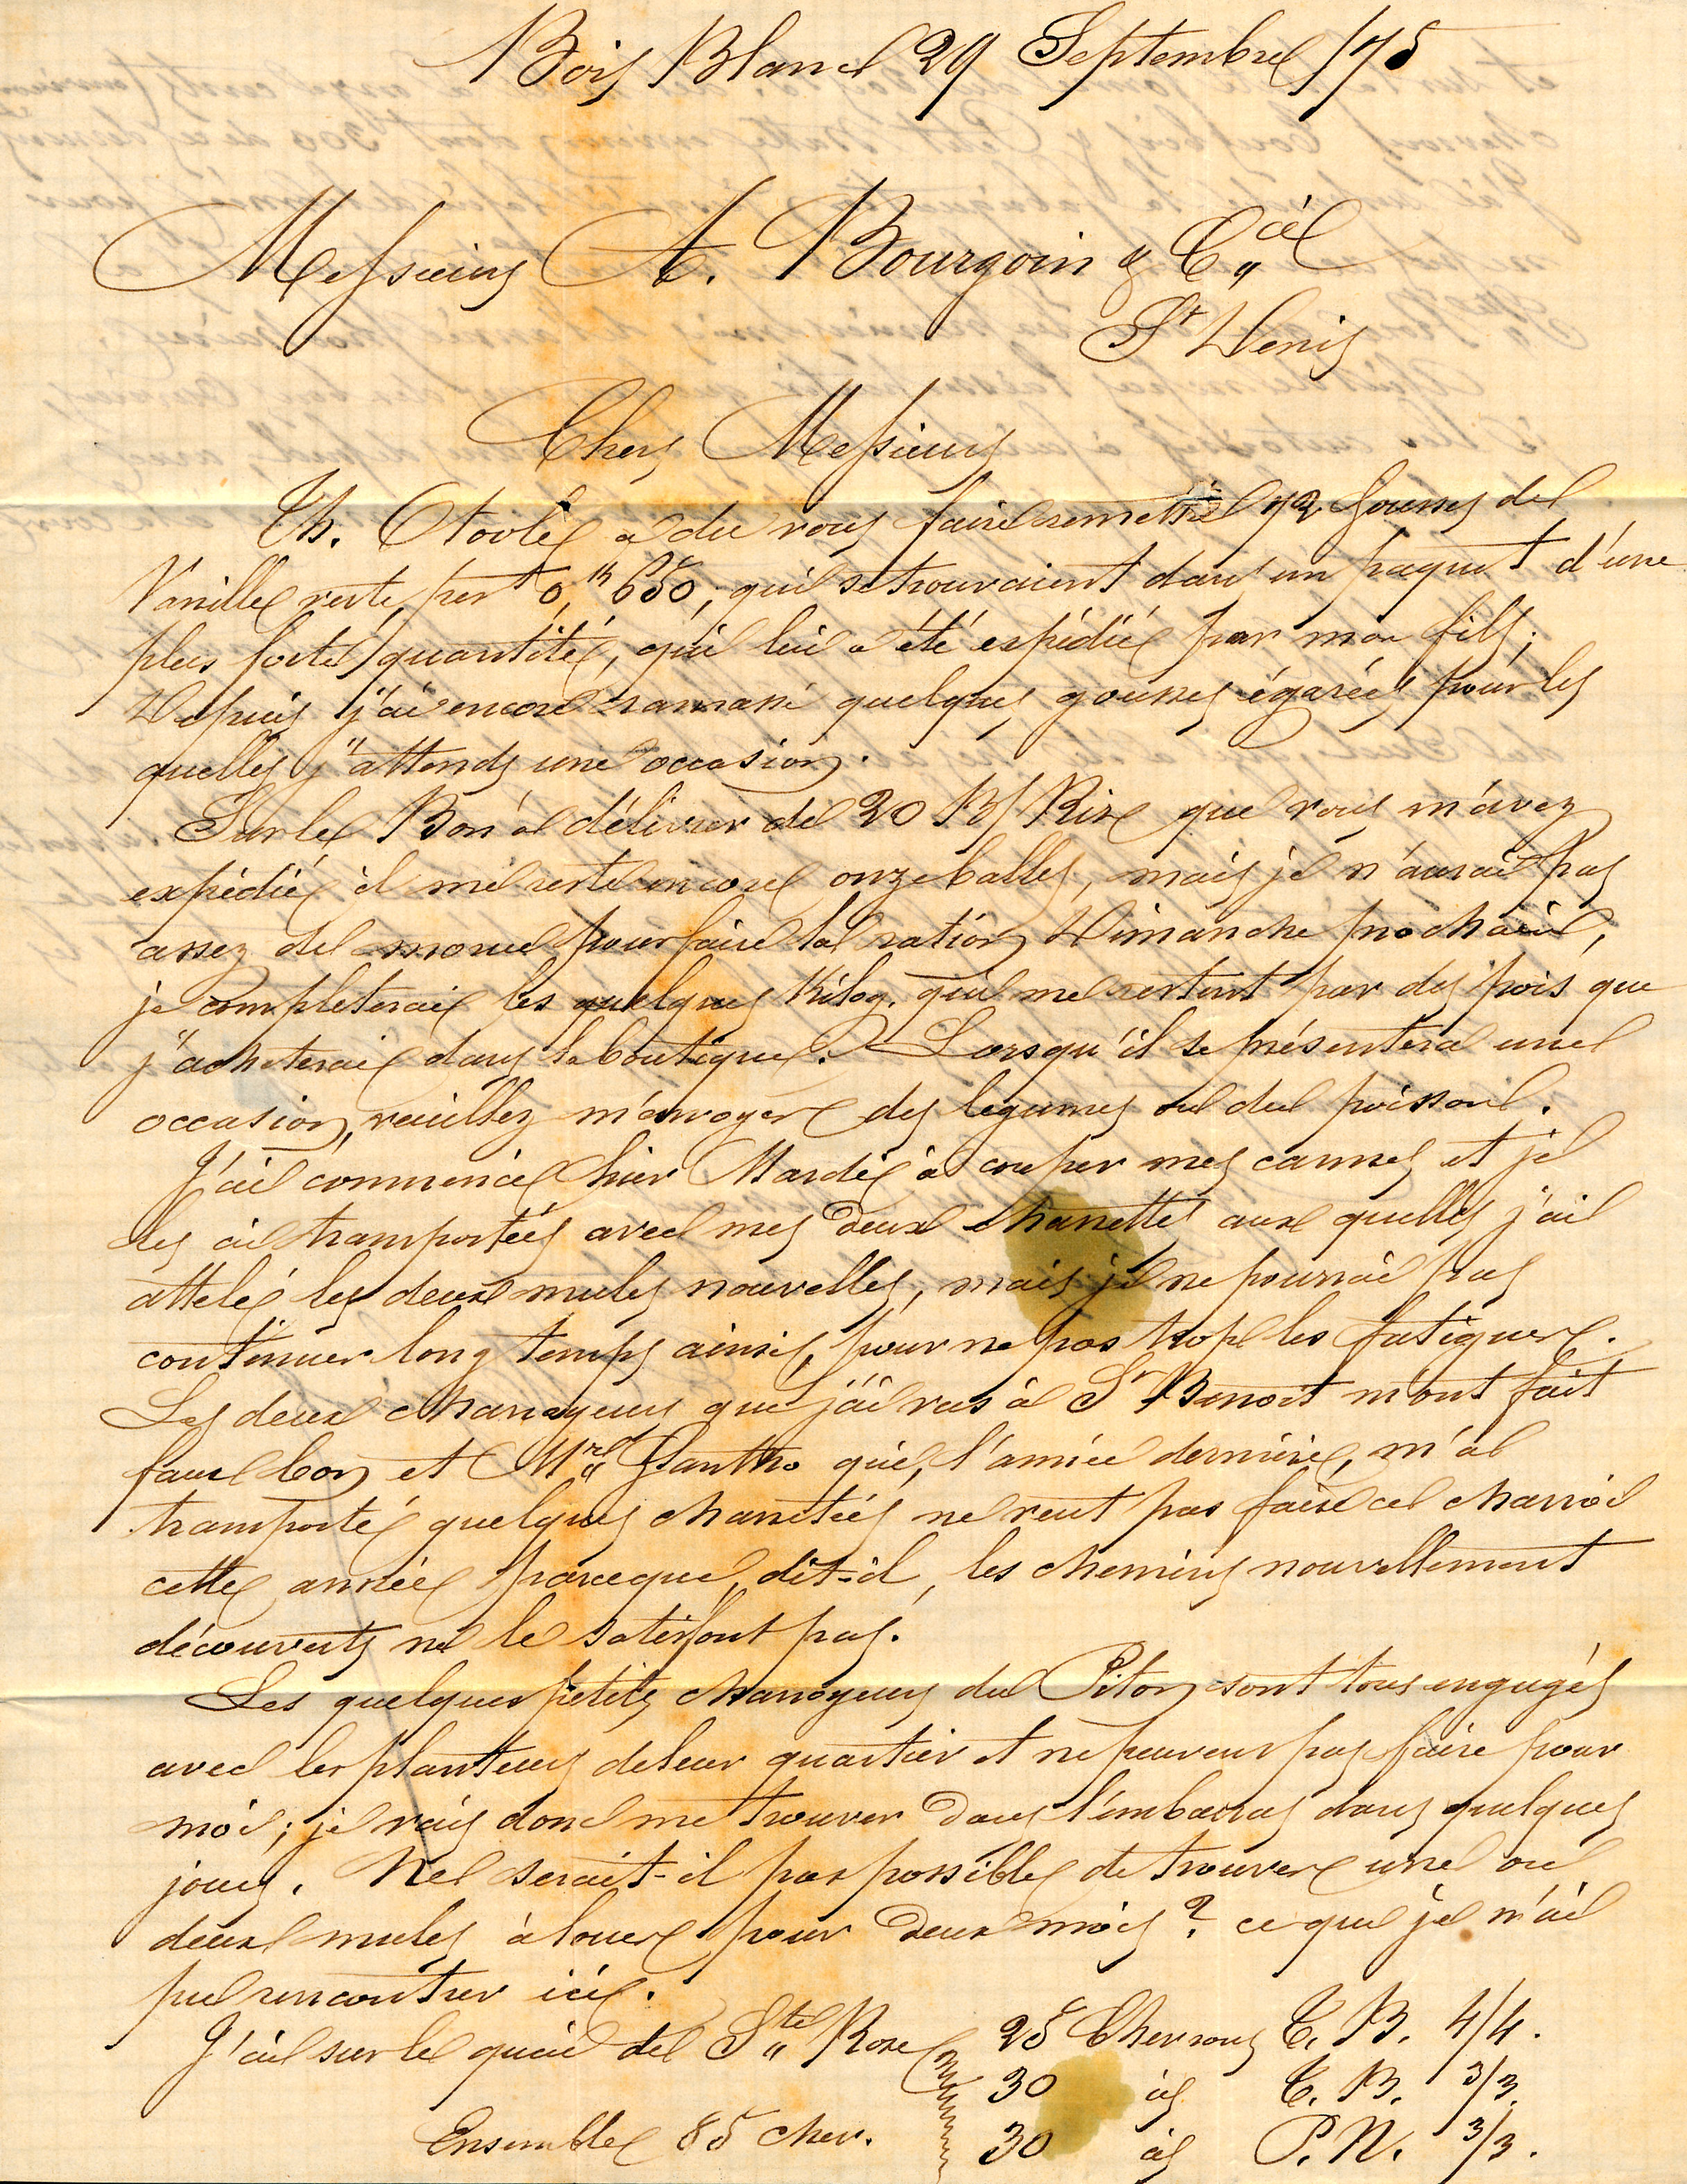 Bois Blanc 29 Septembre /75
Messieurs A. Bourgoin & Cie
St Denis
Chers Messieurs
Th. Otoole a du vous faire remettre 92 Gousses de
Vanille verte, pest 0,k 650, qui se trouvaient dans un paquet d'une
plus forte quantité, qui lui a été expédiée par mon fils;
Depuis j'ai encore ramassé quelques gousses égarées pour les
quelles j'attends une occasion.
Sur le Bon à délivrer de 20 B/ Riz que vous m'avez
expédié il me reste encore onze balles, mais je n'aurai pas
assez de morue pour faire la ration Dimanche prochain,
je completerai les quelques Kilog. qui me restent par des pois que
j'acheterai dans la boutique. Lorsqu'il se présentera une
occasion, veuillez m'envoyer des legumes ou du poisson.
J'ai commencé hier Mardi à couper mes cannes et je
les ai transportées avec mes deux charrettes aux quelles j'ai
attelé les deux mules nouvelles, mais je ne pourrai pas
continuer long temps ainsi, pour ne pas trop les fatiguer.
Les deux charroyeurs que j'ai vus à St Benoit m'ont fait
faux bon et Mr qui, l'année dernière, m'a
transporté quelques charretées ne veut pas faire ce charroi
cette année parceque, dit-il, les chemins nouvellement
découverts ne le satisfont pas.
Les quelques petits charroyeurs du Piton sont tous engagés
avec les planteurs de leur quartier et ne peuvent pas faire pour
moi; je vais donc me trouver dans l'embarras dans quelques
jours. Ne serait-il pas possible de trouver une ou
deux mules à louer pour deux mois? ce que je n'ai
pu rencontrer ici.
J'ai sur le quai de Ste Rose 25 Chevrons C. B. 4/4.
30 id C. B. 3/3.
Ensemble 85 chev. 30 id P. N. 3/3.